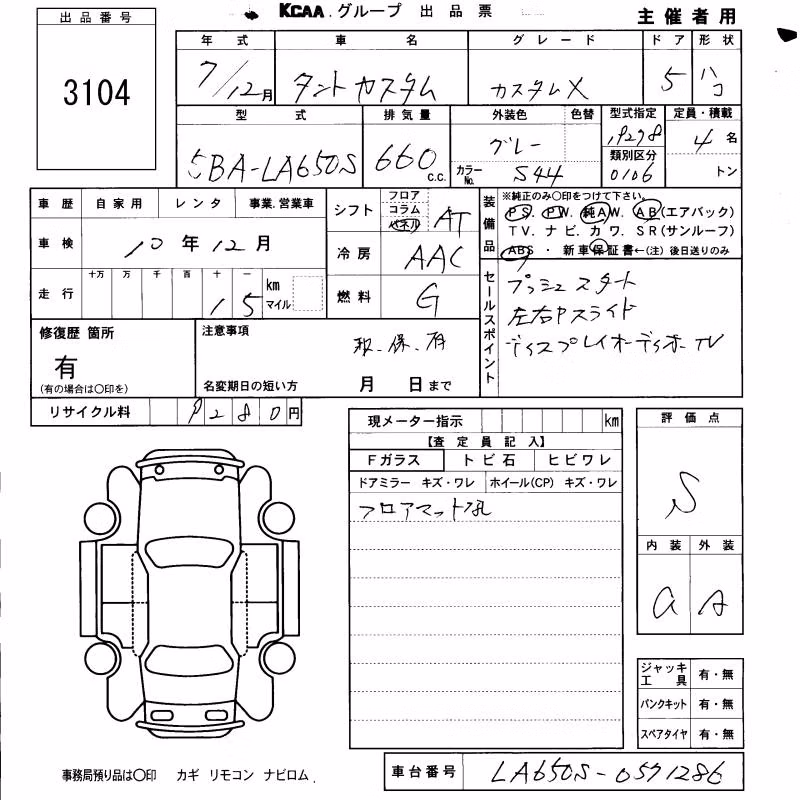 出品番号
3104
KCAA.グループ 出品票
主催者用
年式 車名 グレード ドア 形状
7/12月 タントカスタム カスタムX 5 ハコ
型式 排気量 外装色 色替 型式指定 定員・積載
5BA-LA650S 660 c.c. グレー 19278 4名
カラーNo. S44 類別区分 0106 トン
車歴 自家用 レンタ 事業.営業車
シフト フロア コラム パネル AT
装備品 ※純正のみ○印をつけて下さい。
PS. PW. 純AW. AB(エアバック)
TV. ナビ. カワ. SR(サンルーフ)
ABS ・ 新車保証書←(注) 後日送りのみ
車検 10年12月
冷房 AAC
走行 十万 万 千 百 十 一 km マイル
15
燃料 G
セールスポイント
プッシュスタート
左右Pスライド
ディスプレイオーディオ・TV
修復歴 箇所
有
(有の場合は○印を)
注意事項
取.保.有
名変期日の短い方 月 日まで
リサイクル料 9280円
現メーター指示 km
【査定員記入】
Fガラス トビ石 ヒビワレ
ドアミラー キズ・ワレ ホイール(CP) キズ・ワレ
フロアマット
評価点
S
内装 外装
a A
ジャッキ工具 有・無
パンクキット 有・無
スペアタイヤ 有・無
事務局預り品は○印 カギ リモコン ナビロム.
車台番号 LA650S-0571286